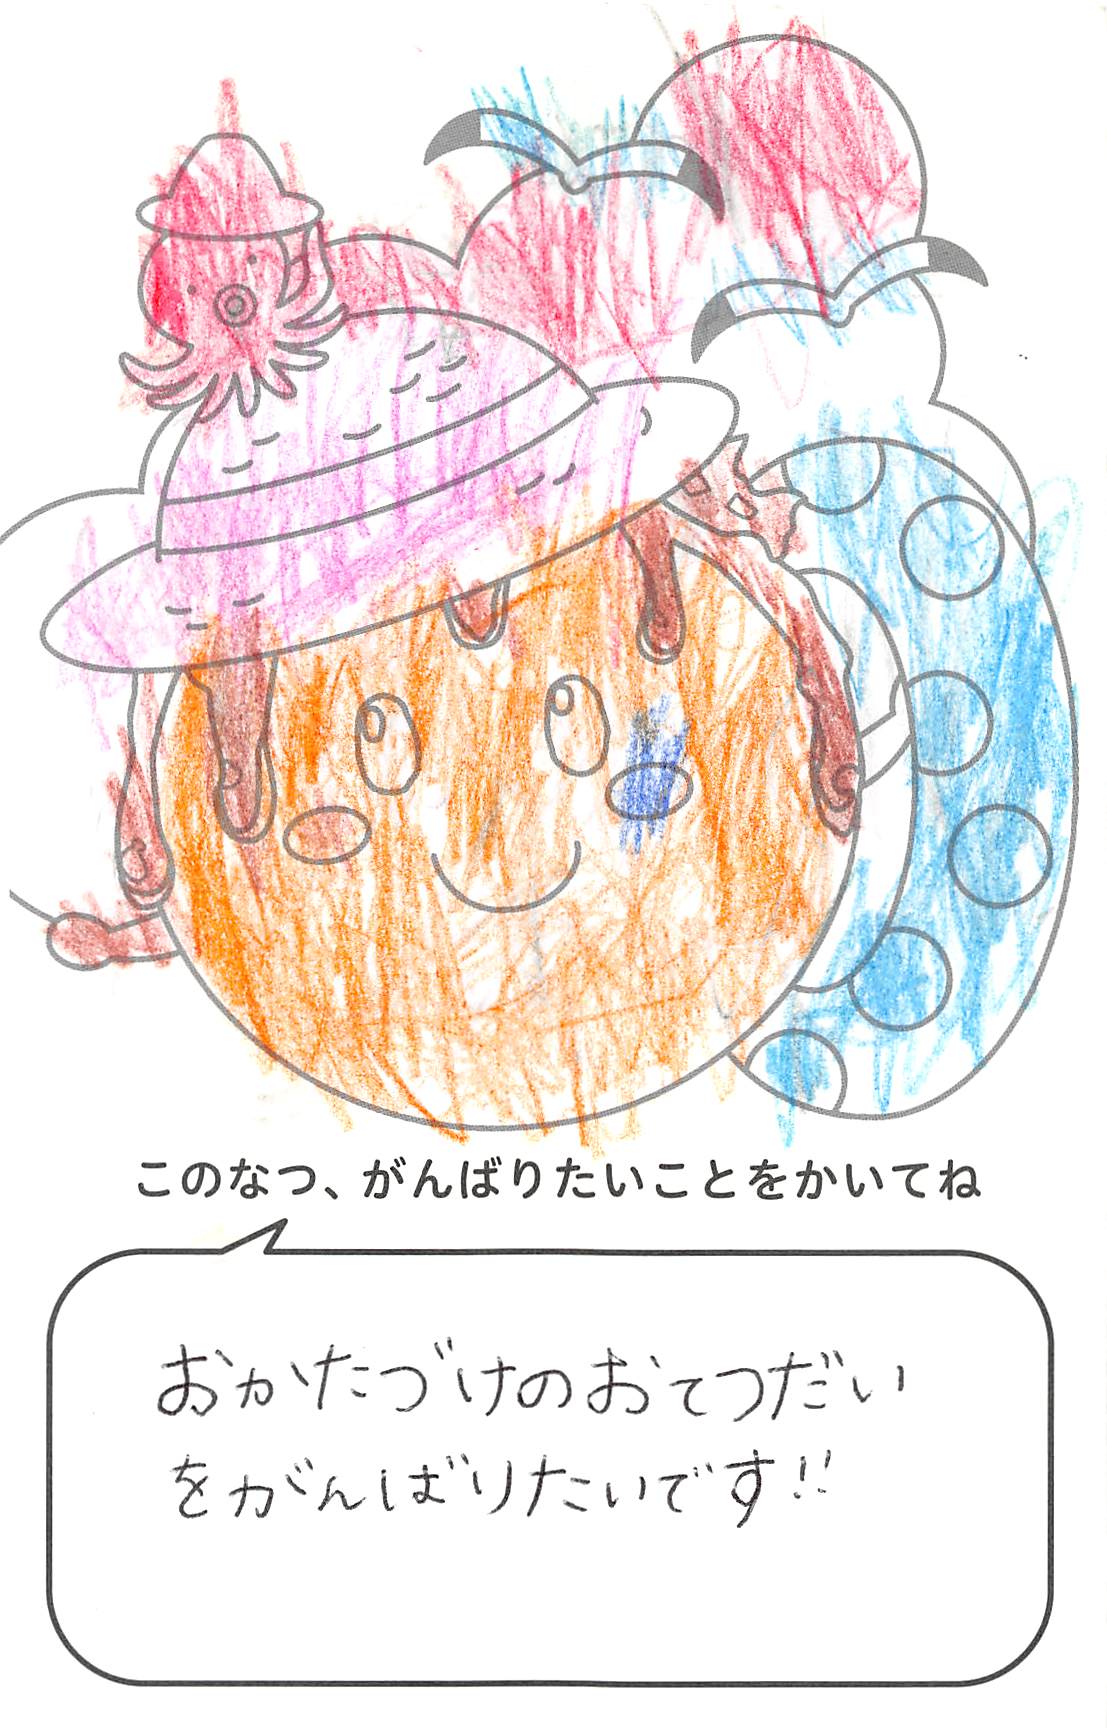 このなつ、がんばりたいことをかいてね
おかたづけのおてつだい
をがんばりたいです!!